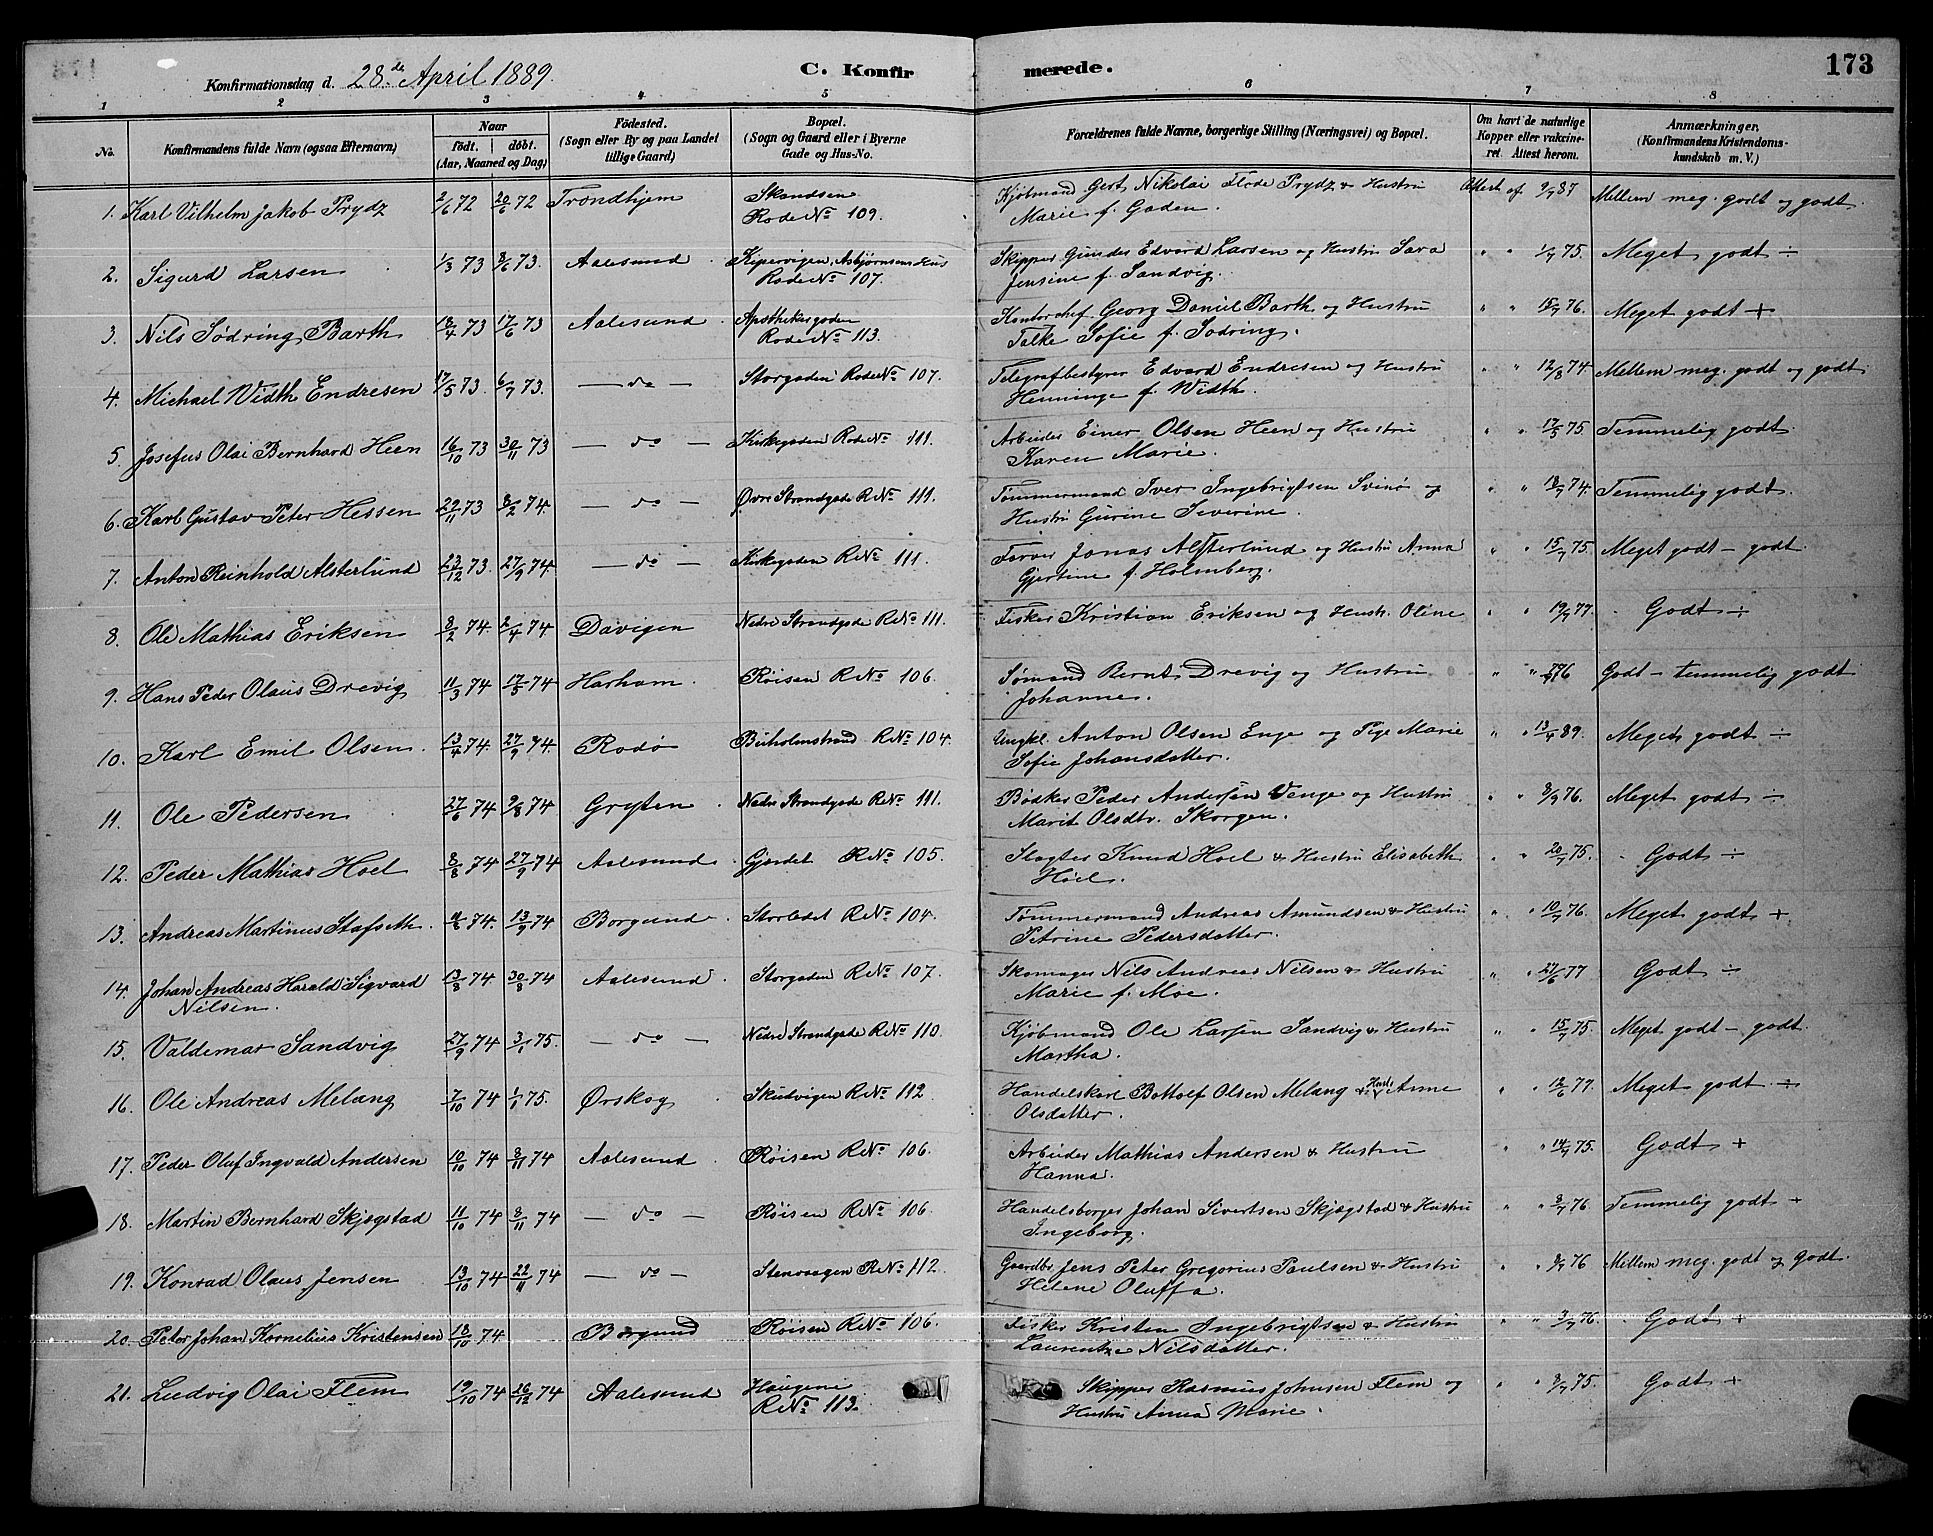 Konfirmationsdag d. 28de April 1889. C. Konfirmerede. 173
1 2 3 4 5 6 7 8
No. Konfirmandens fulde Navn (ogsaa Efternavn) Naar født. døbt. (Aar, Maaned og Dag) Fødested. (Sogn eller By og paa Landet tillige Gaard) Bopæl. (Sogn og Gaard eller i Byerne Gade og Hus-No. Forældrenes fulde Navne, borgerlige Stilling (Næringsvei) og Bopæl. Om havt de naturlige Kopper eller vakcineret. Attest herom. Anmærkninger, (Konfirmandens Kristendomskundskab m. V.)
1. Karl Vilhelm Jakob Prydz 2/6 72 20/6 72 Trondhjem Skandsen Kjøbmand Gert Nikolai Flode Prydz & Hustru Attest af 9/7 87 Mellem meg. godt og godt.
Rode No 109. Marie f. Gaden.
2. Sigurd Larsen 1/3 73 8/6 73. Aalesund Kipervigen, Asbjørnsens Hus Skipper Gunder Edvard Larsen og Hustru Sara " " 1/7 75. Meget godt ÷
Rode No 107. Jensine f. Sandvig.
3. Nils Sødring Barth 18/4 73 17/6 73 Aalesund Apothekergaden Kontorchef Georg Daniel Barth og Hustru " " 15/7 76. Meget godt +
Rode No 113. Falke Sofie f. Sødring.
4. Michael Width Endresen 17/5 73 6/7 73. — do — Storgaden Rode No 107. Telegrafbestyrer Edvard Endresen og Hustru " " 12/8 74 Mellem meg. godt og godt
Henninge f. Width.
5. Josefus Olai Bernhard Heen 16/10 73 30/11 73 — do — Kirkegaden Rode No 111. Arbeider Einer Olsen Heen og Hustru " " 17/5 75 Temmelig godt.
Karen Marie.
6. Karl Gustav Peter Hessen 22/11 73 8/2 74. — do — Øvre Strandgade R No 111. Tømmermand Iver Ingebrigtsen Svinø og " " 18/7 74. Temmelig godt.
Hustru Gurine Severine.
7. Anton Reinhold Alsterlund 23/12 73. 27/9 74. — do — Kirkegaden R No 111. Farver Jonas Alsterlund og Hustru Anna " " 15/7 75. Meget godt – godt.
Gjertine f. Holmberg.
8. Ole Mathias Eriksen 8/2 74. 2/4 74 Davigen Nedre Strandgade R No 111. Fisker Kristian Eriksen og Hustr. Oline " " 19/7 77. Godt ÷
9. Hans Peder Olaus Drevig 11/3 74 17/5 74 Harham. Røisen R No 106. Sømand Bernt Drevig og Hustru " " 76 Godt – temmelig godt
Johanne.
10. Karl Emil Olsen. 13/4 74. 27/9 74. Rodø Buholmstrand R No 104. Ungkl. Anton Olsen Enge og Pige Marie " " 13/4 89. Meget godt ÷
Sofie Johansdatter.
11. Ole Pedersen 27/6 74 9/8 74 Gryten Nedre Strandgade R No 111. Bødker Peder Andersen Venge og Hustru " " 8/9 76. Meget godt ÷
Marit Olsdtr. Skorgen.
12. Peder Mathias Hoel 8/8 74 27/9 74 Aalesund Gjerdet R No 105. Slagter Knud Hoel & Hustru Elisabeth " " 20/7 75. Godt ÷
Hoel.
13. Andreas Martinus Stafseth. 4/8 74. 13/9 74 Borgund Storledet R No 104. Tømmermand Andreas Amundsen & Hustru " " 10/7 76. Meget godt +
Petrine Pedersdatter.
14. Johan Andreas Harald Sigvard 13/8 74. 30/8 74 Aalesund Storgaden R No 107. Skomager Nils Andreas Nilsen & Hustru " " 27/6 77 Godt ÷
Nilsen. Marie f. Moe.
15. Valdemar Sandvig 27/9 74 3/1 75. — do — Nedre Strandgade R No 110. Kjøbmand Ole Larsen Sandvig & Hustru " " 15/7 75. Meget godt – godt.
Martha.
16. Ole Andreas Melang 7/10 74 1/1 75. Ørskog Skutvigen R No 112 Handelskarl Bottolf Olsen Melang & Hust. Anne " " 18/6 77. Meget godt ÷
Olsdatter.
17. Peder Oluf Ingvald Andersen 10/10 74 8/11 74 Aalesund Røisen R No 106. Arbeider Mathias Andersen & Hustru " " 14/7 75. Godt +
Hanna.
18. Martin Bernhard Skjøgstad 11/10 74 8/11 74 — do — Røisen R No 106. Handelsborger Johan Sivertsen Skjøgstad & Hustru " " 8/7 76. Temmelig godt +
Ingeborg.
19. Konrad Olaus Jensen 13/10 74 22/11 74 — do — Stenvaagen R No 112. Gaardbr. Jens Peter Gregorius Paulsen & Hustru " " 8/7 76 Mellem meg. godt og godt.
Helene Oluffa.
20. Peter Johan Kornelius Kristensen 18/10 74 Borgund Røisen R No 106. Fisker Kristen Ingebrigtsen & Hustru " " 3/7 76. Godt +
Laurentze Nilsdatter.
21. Ludvig Olai Flem 19/10 74 26/12 74 Aalesund Haugene Skipper Rasmus Johnsen Flem og " " 8/7 75. Godt +
R No 113. Hustru Anna Marie.